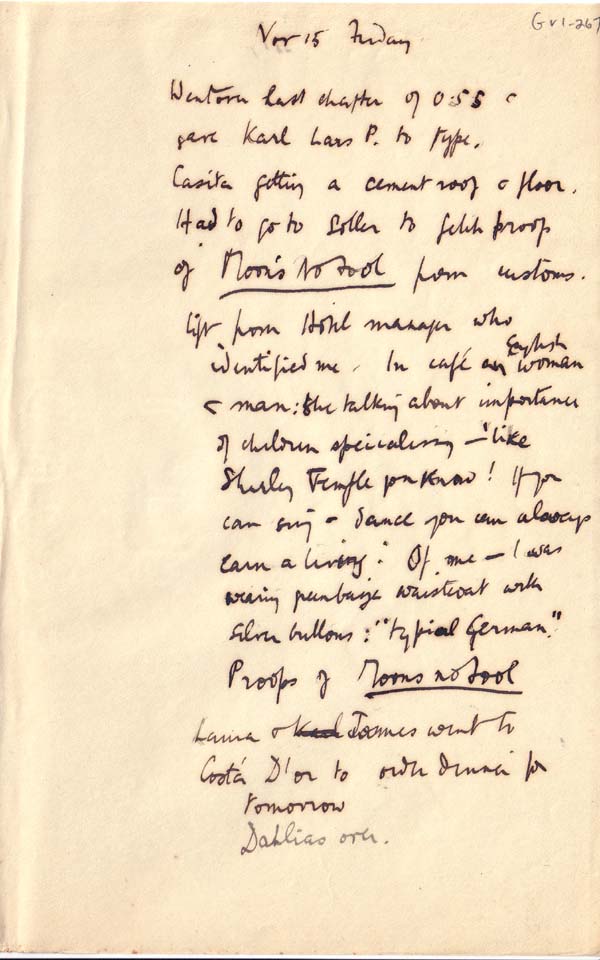 GV1-267
Nov 15 Friday
Went over last chapter of 0:55 &
gave Karl Lars P. to type.
Casita getting a cement roof & floor.
Had to go to Soller to fetch proof
of Moon's No Fool from customs.
lift from Hotel manager who
identified me. In café an English woman
& man: she talking about importance
of children specialising – 'like
Shirley Temple you know! If you
can sing & dance you can always
earn a living.' Of me – I was
wearing waistcoat with
silver buttons: "typical German."
Proofs of Moons no Fool
Laura & Karl James went to
Costa D'or to order dinner for
tomorrow
Dahlias over.